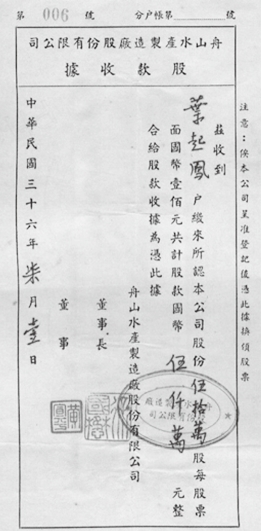 第 006 號 分户帳第 號
司公限有份股廠造製產水山舟
據收款股
茲收到
葉起鳳 户繳來所認本公司股份伍拾萬股每股票
面國幣壹佰元共計股款國幣伍仟萬元整
合給股款收據為憑此據
舟山水產製造廠股份有限公司
董事長
董事
中華民國三十六年柒月壹日
注意：俟本公司呈准登記後憑此據換領股票